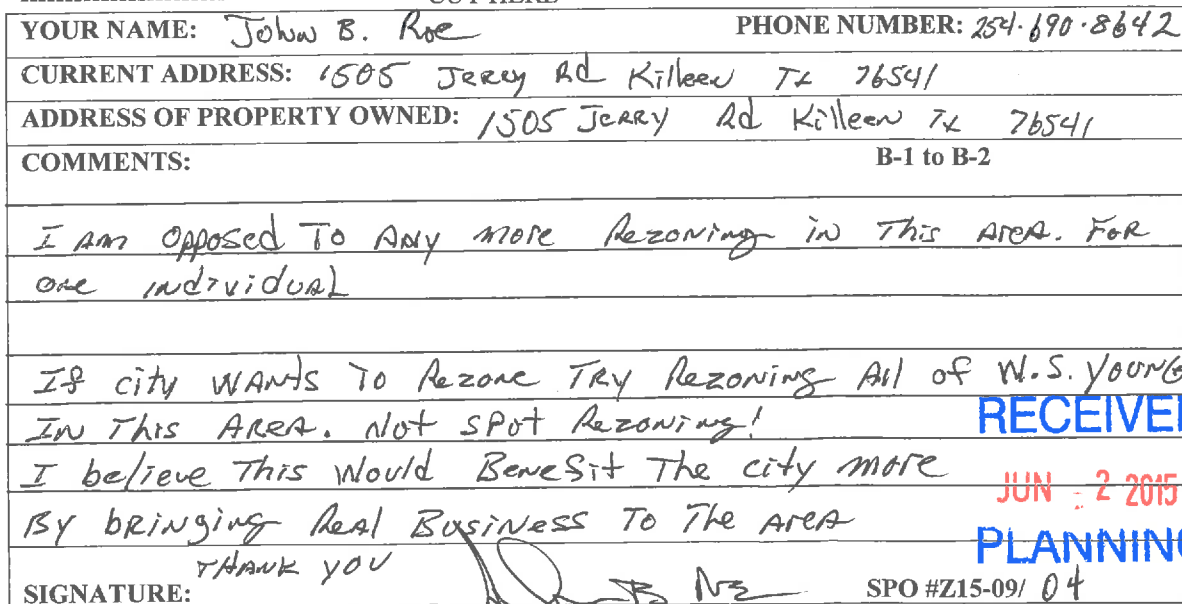 YOUR NAME: John B. Roe PHONE NUMBER: 254.690.8642
CURRENT ADDRESS: 1505 Jerry Rd Killeen Tx 76541
ADDRESS OF PROPERTY OWNED: 1505 Jerry Rd Killeen Tx 76541
COMMENTS: B-1 to B-2
I am opposed To Any more Rezoning in This Area. For
one individual
If city WANts To Rezone TRy Rezoning All of W.S. YOUNG
In This Area. Not spot Rezoning!
RECEIVE
I believe This Would Benefit The city more
JUN - 2 2015
By bringing Real Business To The Area
PLANNING
THANK YOU
SIGNATURE: SPO #Z15-09/ 04